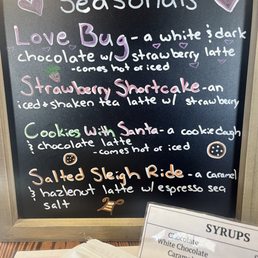 Seasonals
Love Bug - a white & dark
chocolate w/ strawberry latte
- comes hot or iced
Strawberry Shortcake - an
iced & shaken tea latte w/ strawberry
Cookies With Santa - a cookie dough
& chocolate latte
- comes hot or iced
Salted Sleigh Ride - a caramel
& hazlenut latte w/ espresso sea
salt
SYRUPS
Chocolate
White Chocolate
Caramel